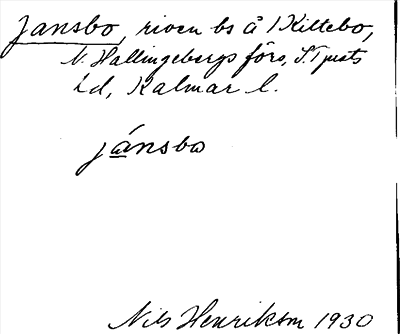 Jansbo, riven bs å Kiltebo,
N. Hallingebergs förs, S. Tjusts
hd, Kalmar l.
jánsbo
Nils Henrikson 1930